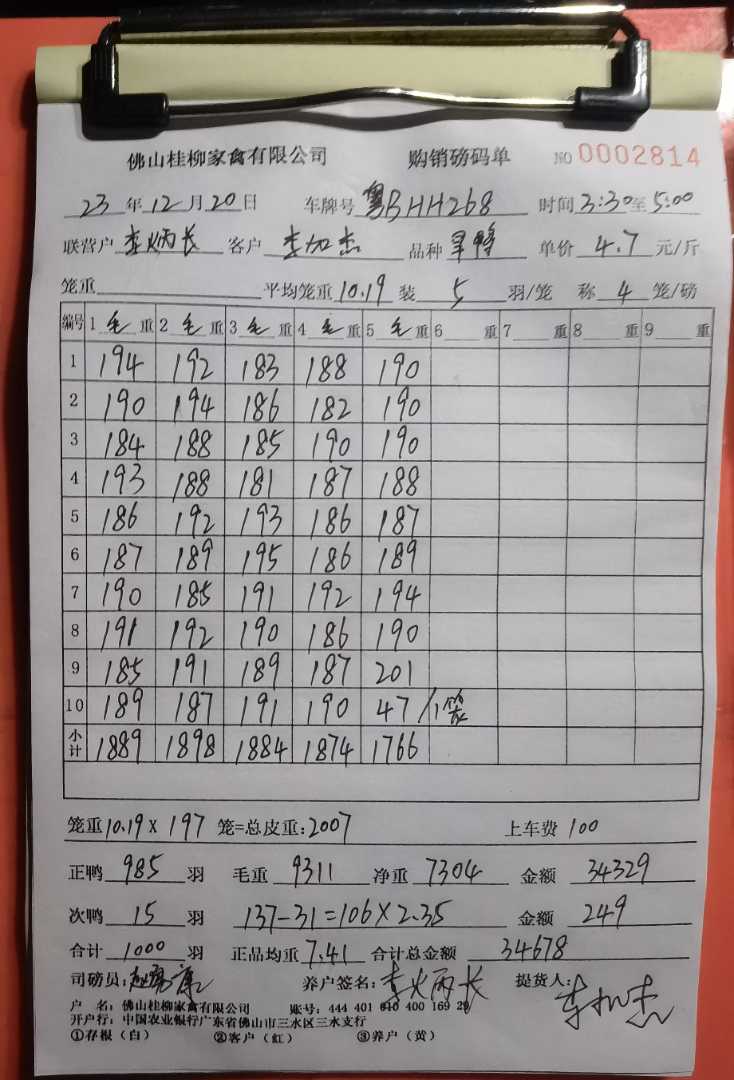 佛山桂柳家禽有限公司 购销磅码单 NO 0002814
23 年 12 月 20 日 车牌号 粤BHH268 时间 3:30 至 5:00
联营户 李炳长 客户 李加杰 品种 旱鸭 单价 4.7 元/斤
笼重 平均笼重 10.19 装 5 羽/笼 称 4 笼/磅
编号 1 毛 重 2 毛 重 3 毛 重 4 毛 重 5 毛 重 6 重 7 重 8 重 9 重
1 194 192 183 188 190
2 190 194 186 182 190
3 184 188 185 190 190
4 193 188 181 187 188
5 186 192 193 186 187
6 187 189 195 186 189
7 190 185 191 192 194
8 191 192 190 186 190
9 185 191 189 187 201
10 189 187 191 190 47 /1笼
小计 1889 1898 1884 1874 1766
笼重 10.19 X 197 笼=总皮重: 2007 上车费 100
正鸭 985 羽 毛重 9311 净重 7304 金额 34329
次鸭 15 羽 137-31=106×2.35 金额 249
合计 1000 羽 正品均重 7.41 合计总金额 34678
司磅员: 养户签名: 李炳长 提货人: 李加杰
户 名: 佛山桂柳家禽有限公司 账号: 444 401 010 400 169 29
开户行: 中国农业银行广东省佛山市三水区三水支行
①存根（白） ②客户（红） ③养户（黄）